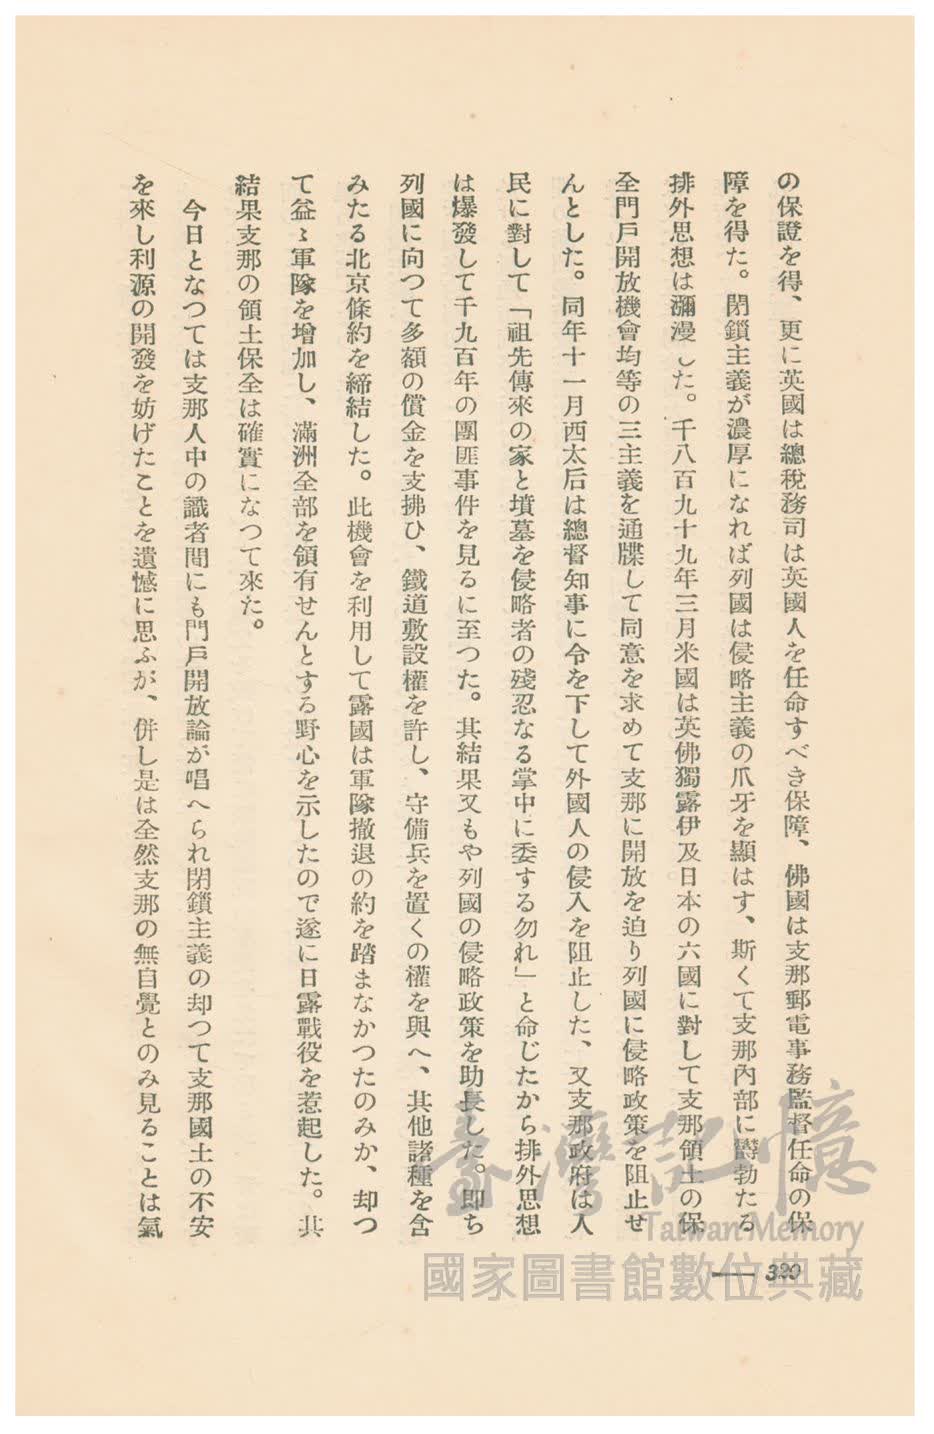 の保證を得、更に英國は總稅務司は英國人を任命すべき保障、佛國は支那郵電事務監督任命の保
障を得た。閉鎖主義が濃厚になれば列國は侵略主義の爪牙を顯はす、斯くて支那內部に欝勃たる
排外思想は瀰漫した。千八百九十九年三月米國は英佛獨露伊及日本の六國に對して支那領土の保
全門戶開放機會均等の三主義を通牒して同意を求めて支那に開放を迫り列國に侵略政策を阻止せ
んとした。同年十一月西太后は總督知事に令を下して外國人の侵入を阻止した、又支那政府は人
民に對して「祖先傳來の家と墳墓を侵略者の殘忍なる掌中に委する勿れ」と命じたから排外思想
は爆發して千九百年の團匪事件を見るに至つた。其結果又もや列國の侵略政策を助長した。即ち
列國に向つて多額の償金を支拂ひ、鐵道敷設權を許し、守備兵を置くの權を與へ、其他諸種を含
みたる北京條約を締結した。此機會を利用して露國は軍隊撤退の約を踏まなかつたのみか、却つ
て益〻軍隊を增加し、滿洲全部を領有せんとする野心を示したので遂に日露戰役を惹起した。其
結果支那の領土保全は確實になつて來た。
今日となつては支那人中の識者間にも門戶開放論が唱へられ閉鎖主義の却つて支那國土の不安
を來し利源の開發を妨げたことを遺憾に思ふが、併し是は全然支那の無自覺とのみ見ることは氣
320
臺灣記憶
Taiwan Memory
國家圖書館數位典藏